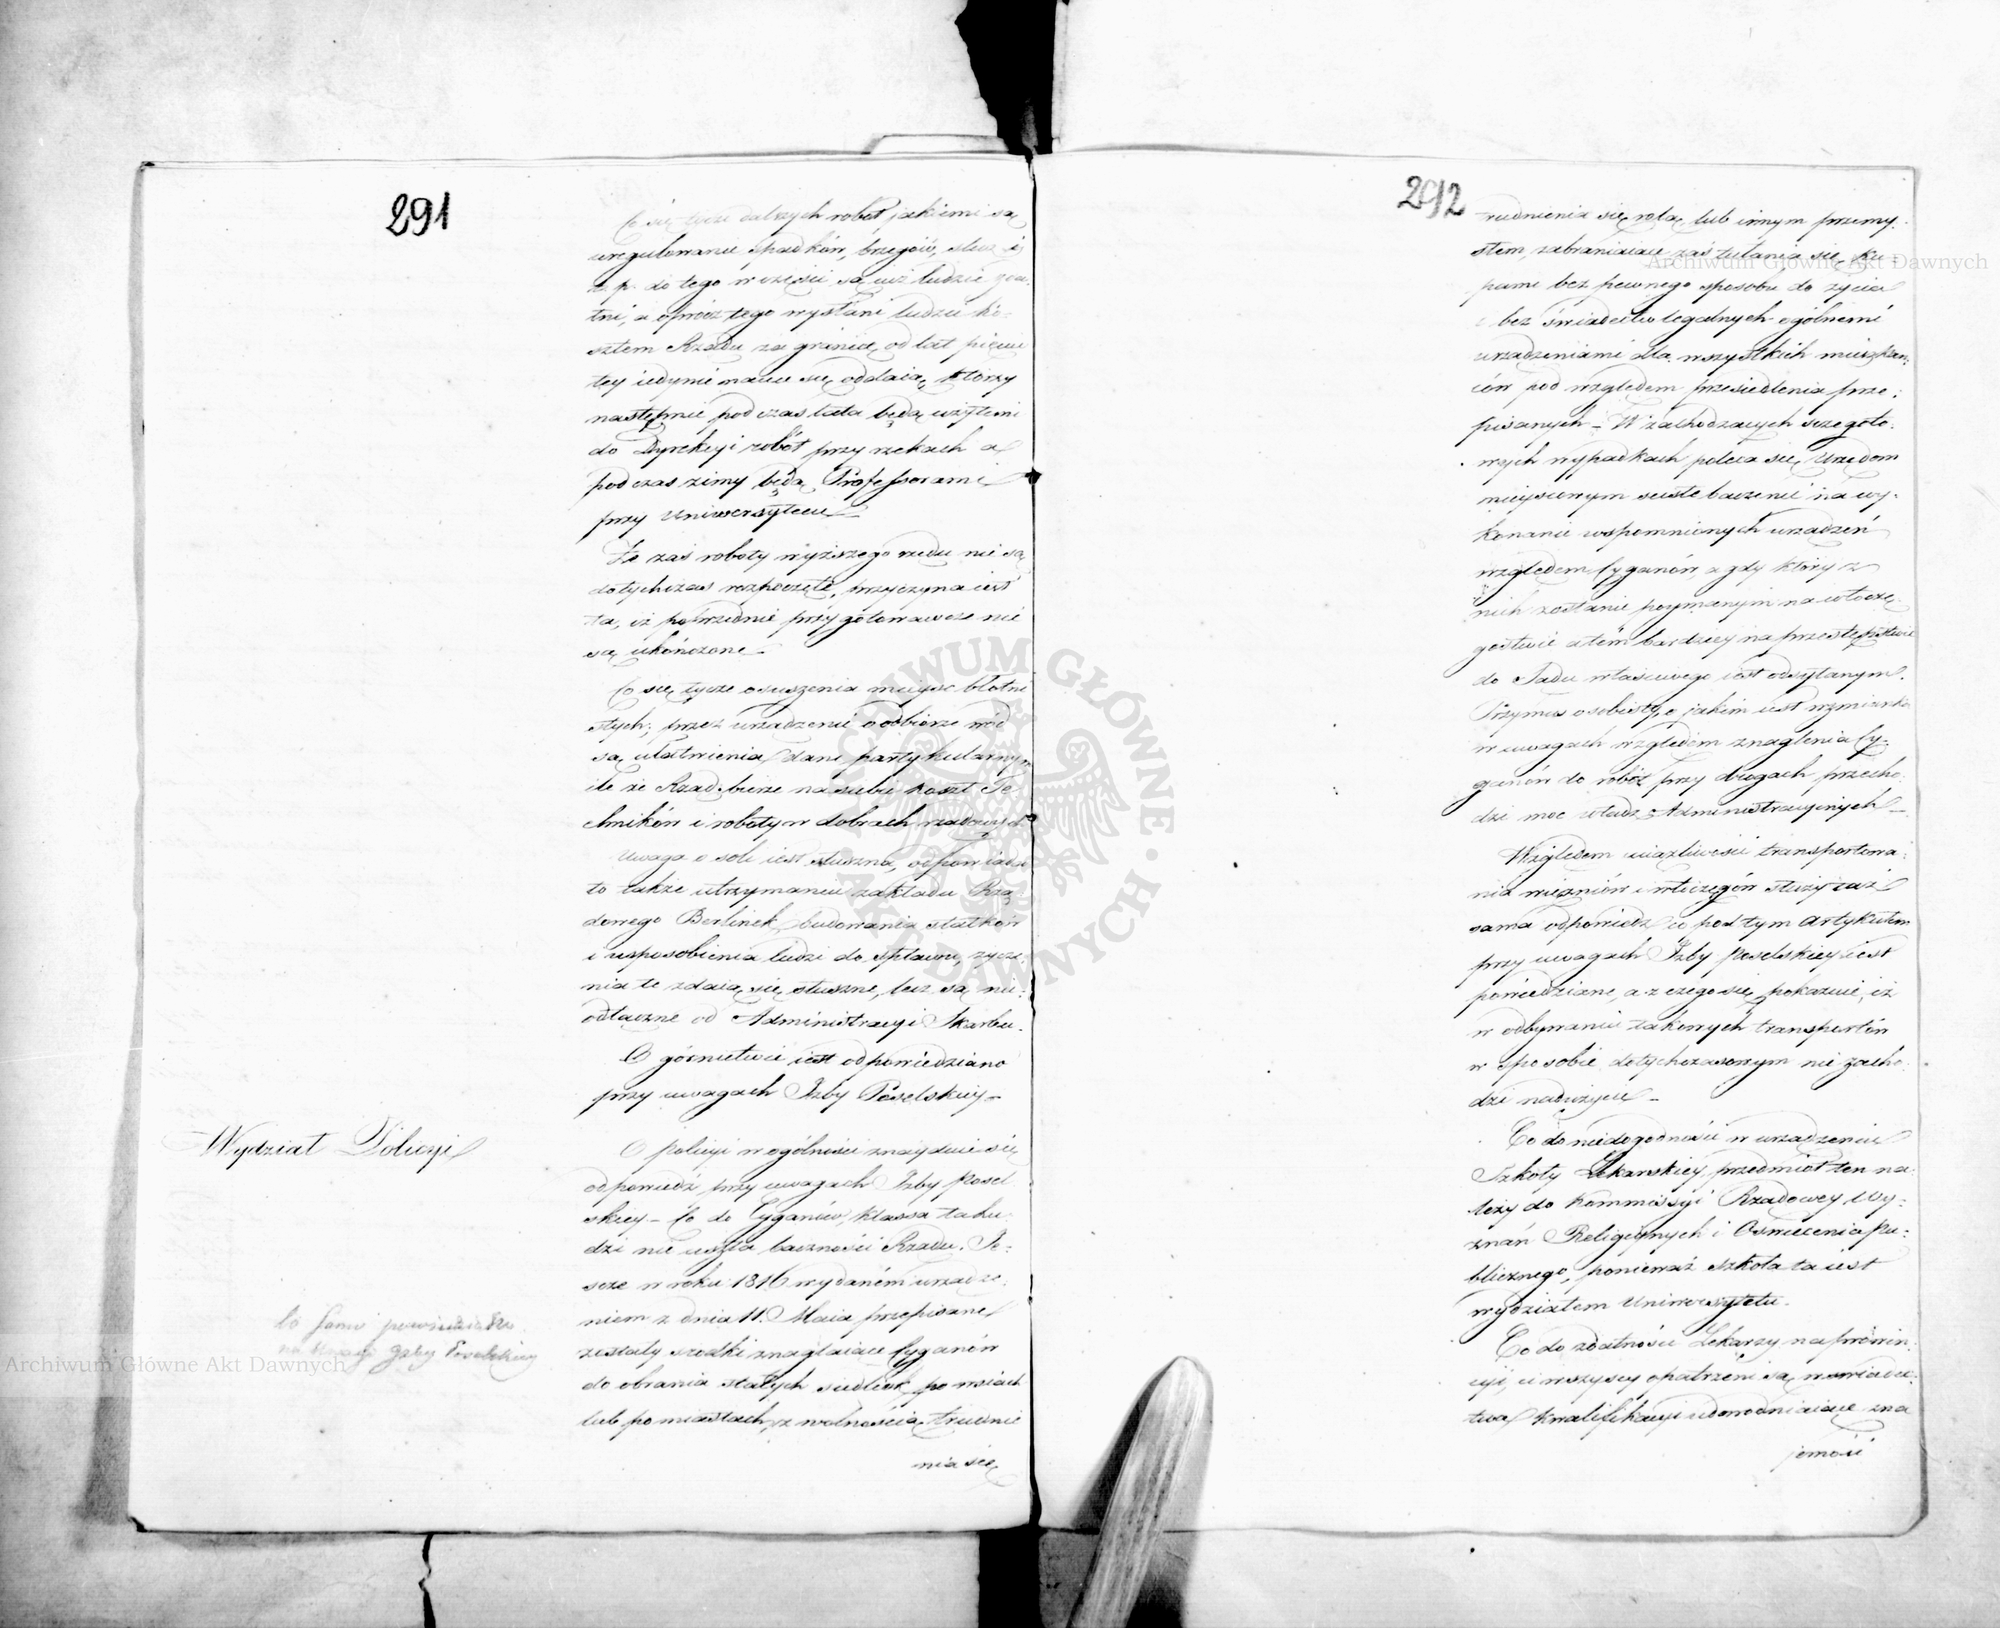 291
Co się tycze dalszych robót, jakiemi są
uregulowanie spadków, brzegów, śluz i
t. p. do tego w części są już ludzie zda-
tni, a oprócz tego wysłani ludzie ko-
sztem Rządu za granicę, od lat
tey iedynie nauce się oddaią, którzy
następnie podczas lata będą użytemi
do Dyrekcyi robót przy rzekach a
podczas zimy będą Professorami
przy Uniwersytecie
Że zaś roboty wyższego rzędu nie są
dotychczas rozpoczęte, przyczyną iest
ta, iż poprzednie przygotowawcze nie
są ukończone.
Co się tycze osuszenia mieysc błotni
stych; przez urządzenie o odbiorze wód
są ułatwienia dane partykularnym
ile że Rząd bierze na siebie koszt Te
chników i roboty w dobrach rządowych
Uwaga o soli iest słuszna, odpowiada
to także utrzymaniu zakładu Rzą
dowego Berlinek, budowania statków
i usposobienia ludzi do spławu, życze
nia te zdaią się słuszne, lecz są nie-
odłączne od Administracyi Skarbu.
O górnictwie iest odpowiedziano
przy uwagach Izby Poselskiey –
Wydział Policyi
O policyi w ogólności znayduie się
odpowiedź przy uwagach Izby Posel
skiey – Co do Cyganów, klassa ta lu-
dzi nie uszła baczności Rządu. Je-
scze w roku 1816 wydaném urządze-
niem z dnia 11. Maia przepisane
zostały srodki znaglaiące Cyganów
do obrania stałych siedlisk po wsiach
lub po miastach, z wolnością trudnie
nia się
to samo powiedziano
na uwagi Izby Poselskiey
292
trudnienia się rolą lub innym przemy-
słem, zabraniaiące zaś tułania się ku-
pami bez pewnego sposobu do życia
i bez świadectw legalnych ogólnemi
urządzeniami dla wszystkich mieszkań-
ców pod względem przesiedlenia prze-
pisanych – W zachodzących szczegóło-
wych wypadkach poleca się Urzędom
mieyscowym ścisłe baczenie na wy-
konanie wspomnionych urządzeń
względem Cyganów, a gdy który z
nich zostanie poymanym na włóczę-
gostwie a tém bardziey na przestępstwie
do Sądu właściwego iest odsyłanym.
Przymus osobisty, o jakim iest wzmianka
w uwagach względem znaglenia Cy-
ganów do robót przy drogach przecho-
dzi moc władz Administracyinych –
Względem uciążliwości transportowa-
nia więźniów i włóczęgów służy taż
sama odpowiedź co pod tym artykułem
przy uwagach Izby Poselskiey iest
powiedziane, a z czego się pokazuie, iż
w odbywaniu takowych transportów
w sposobie dotychczasowym nie zacho-
dzi nadużycie –
Co do niedogodności w urządzeniu
Szkoły Lekarskiey, przedmiot ten na-
leży do Kommissyi Rządowey Wy-
znań Religiynych i Oświecenia Pu-
blicznego, ponieważ szkoła ta iest
wydziałem Uniwersytetu.
Co do zdatności Lekarzy na prowin-
cyi, ci wszyscy opatrzeni są w świadec-
twa kwalifikacyi udowodniaiące zna
jomość
Archiwum Główne Akt Dawnych
Archiwum Główne Akt Dawnych
ARCHIWUM GŁÓWNE · AKT DAWNYCH ·